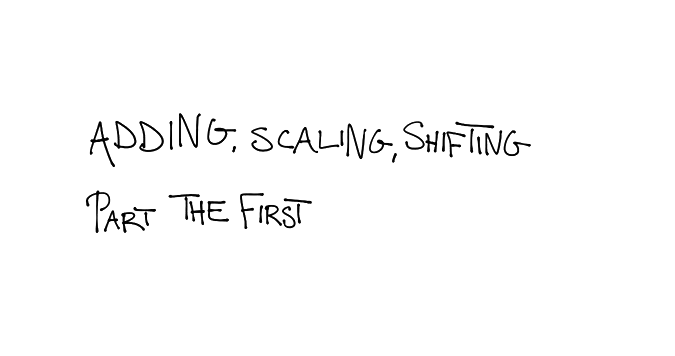 ADDING, SCALING, SHIFTING
PART THE FIRST